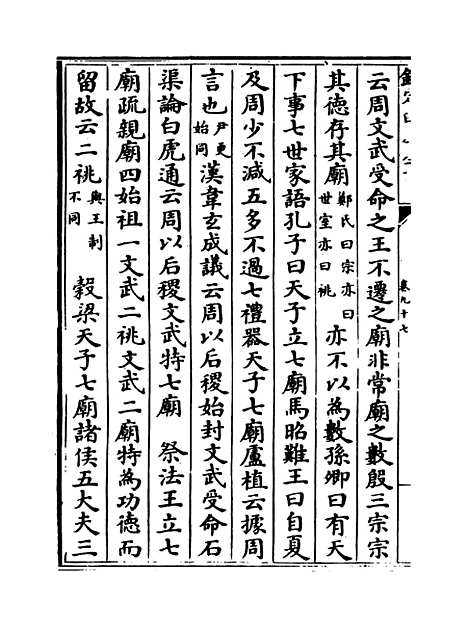 云周文武受命之王不遷之廟非常廟之數殷三宗宗
其徳存其廟鄭氏曰宗亦曰世室亦曰祧亦不以為數孫卿曰有天
下事七世家語孔子曰天子立七廟馬昭難王曰自夏
及周少不減五多不過七禮器天子七廟盧植云據周
言也尹更始同漢韋玄成議云周以后稷始封文武受命石
渠論白虎通云周以后稷文武特七廟　祭法王立七
廟疏親廟四始祖一文武二祧文武二廟特為功徳而
留故云二祧與王制不同　穀梁天子七廟諸侯五大夫三
卷九十七